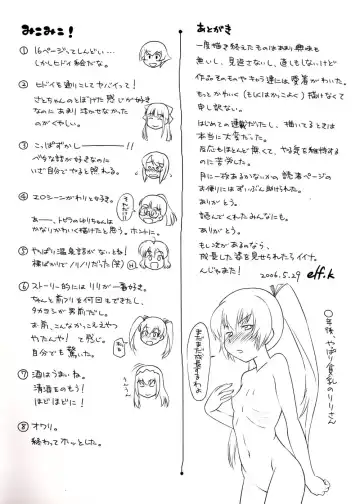 みこみこ！
① 16ページってしんどい…
しかしヒドイ絵だな。
② ヒドイを通りこしてヤバイって！
さとちゃんのとぼけた感じが好き
なのにあまり活かせなかった
のがくやしい。
③ こっぱずかしー！
ベタな話が好きなのに
いざ自分でやると照れる。
④ エロシーンがわりと好き。
あー、トビラのゆりちゃんは
かなりかわいく描けたと思う。ホントに。
⑤ やっぱり温泉話がないとね！
裸ばかりでノリノリだった（笑）
⑥ ストーリー的にはリリが一番好き。
ちゃんと前フリを何回もできたし、
タカヨシが男前だし。
お前、こんなかっこええやつ
やったんや！て感じ。
自分でも驚く。
⑦ 酒はうまいね。
清酒をのもう！
ほどほどに！
⑧ オワリ。
終わってホッとした。
あとがき
一度描き終えたものはあまり興味も
無いし、見返さないし、直しもしないけど
作品そのものやキャラ達には愛着がわいた。
もっとかわいく（もしくはかっこよく）描けなくて
申し訳ない。
はじめての連載だったし、描いてるときは
本当に大変だった。
反応もほとんど無くて、やる気を維持する
のに苦労した。
月に一枚あるかないかの読者ページの
お便りにはずいぶん助けられた。
ありがとう。
読んでくれたみんなにも。
ありがとう。
もし次があるのなら、
成長した姿を見せられたらイイナ。
んじゃまた！
2006.5.29 eff.k
○年後、やっぱり貧乳のリリさん
まだまだ
成長するわよ